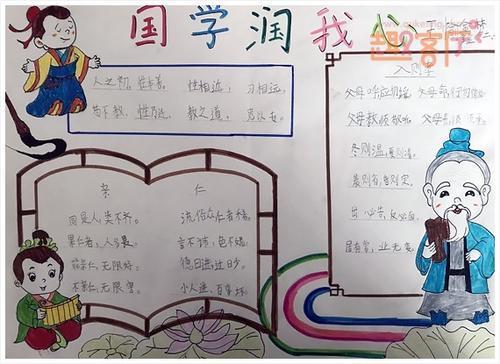 国学润我心
人之初，性本善。 性相近，习相远。
苟不教，性乃迁。 教之道，贵以专。
亲 仁
同是人，类不齐。
果仁者，人多畏。
能亲仁，无限好。
不亲仁，无限害。
流俗众，仁者希。
言不讳，色不媚。
德日进，过日少。
小人进，百事坏。
入则孝
父母呼，应勿缓，父母命，行勿懒
父母教，须敬听，父母责，须顺承
冬则温，夏则凊。
晨则省，昏则定。
出必告，反必面。
居有常，业无变。